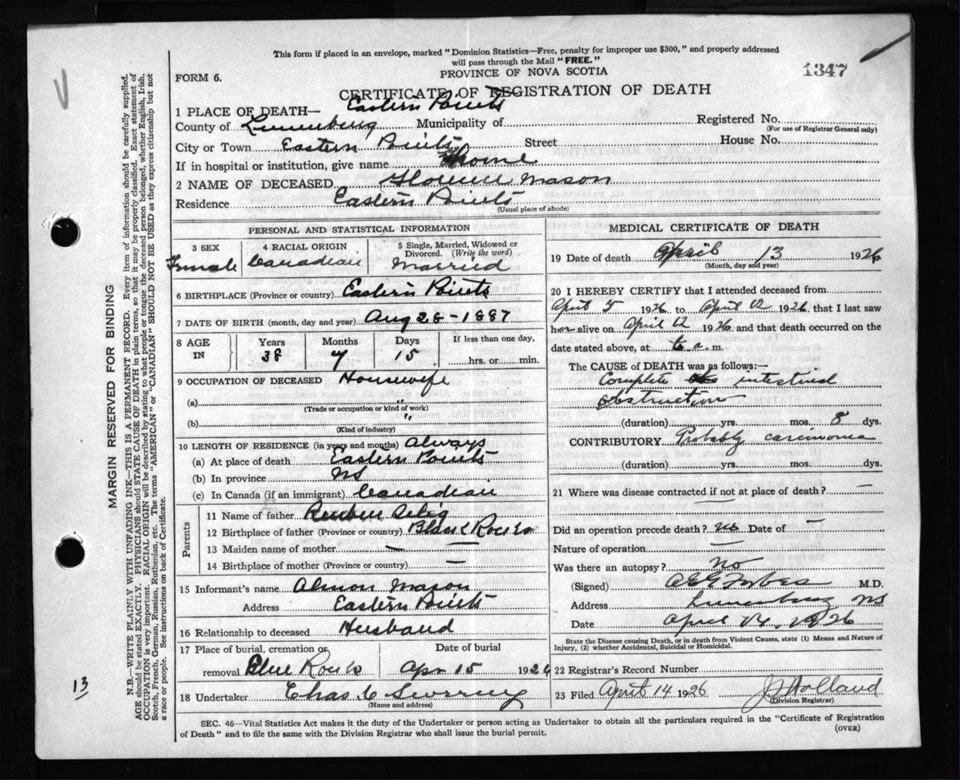 This form if placed in an envelope, marked "Dominion Statistics—Free, penalty for improper use $300," and properly addressed
will pass through the Mail "FREE."
FORM 6.
PROVINCE OF NOVA SCOTIA
1347
CERTIFICATE OF REGISTRATION OF DEATH
1 PLACE OF DEATH— Eastern Points
Registered No.
(For use of Registrar General only)
County of Lunenburg Municipality of
City or Town Eastern Points Street House No.
If in hospital or institution, give name Home
2 NAME OF DECEASED Florence Mason
Residence Eastern Points
(Usual place of abode)
PERSONAL AND STATISTICAL INFORMATION
3 SEX Female
4 RACIAL ORIGIN Canadian
5 Single, Married, Widowed or
Divorced. (Write the word)
Married
6 BIRTHPLACE (Province or country) Eastern Points
7 DATE OF BIRTH (month, day and year) Aug 28-1887
8 AGE IN Years 38 Months 7 Days 15 If less than one day,
hrs. or min.
9 OCCUPATION OF DECEASED Housewife
(a) "
(Trade or occupation or kind of work)
(b) "
(Kind of industry)
10 LENGTH OF RESIDENCE (in years and months) Always
(a) At place of death Eastern Points
(b) In province NS
(c) In Canada (if an immigrant) Canadian
Parents
11 Name of father Reuben
12 Birthplace of father (Province or country)
13 Maiden name of mother —
14 Birthplace of mother (Province or country) —
15 Informant's name Almon Mason
Address Eastern Points
16 Relationship to deceased Husband
17 Place of burial, cremation or
removal Blue Rocks
Date of burial
Apr 15 1926
18 Undertaker Chas
(Name and address)
MEDICAL CERTIFICATE OF DEATH
19 Date of death April 13 1926
(Month, day and year)
20 I HEREBY CERTIFY that I attended deceased from
April 5 1926 to April 12 1926 that I last saw
her alive on April 12 1926 and that death occurred on the
date stated above, at a.m.
The CAUSE OF DEATH was as follows:—
Complete intestinal
obstruction
(duration) yrs. mos. 8 dys.
CONTRIBUTORY Probably carcinoma
(duration) yrs. mos. dys.
21 Where was disease contracted if not at place of death? —
Did an operation precede death? no Date of —
Nature of operation —
Was there an autopsy? No
(Signed) Forbes M.D.
Address Lunenburg NS
Date April 14, 1926
State the Disease causing Death, or in death from Violent Causes, state (1) Means and Nature of
Injury, (2) whether Accidental, Suicidal or Homicidal.
22 Registrar's Record Number
23 Filed April 14 1926 Holland
(Division Registrar)
SEC. 46—Vital Statistics Act makes it the duty of the Undertaker or person acting as Undertaker to obtain all the particulars required in the "Certificate of Registration
of Death" and to file the same with the Division Registrar who shall issue the burial permit.
(OVER)
MARGIN RESERVED FOR BINDING
N.B.—WRITE PLAINLY WITH UNFADING INK—THIS IS A PERMANENT RECORD. Every item of information should be carefully supplied.
AGE should be stated EXACTLY. PHYSICIANS should STATE CAUSE OF DEATH in plain terms, so that it may be properly classified. Exact statement of
OCCUPATION is very important. RACIAL ORIGIN will be described by stating to what people or tongue the deceased person belonged, whether English, Irish,
Scotch, French, German, Russian, Ruthenian, etc. The terms "AMERICAN" or "CANADIAN" SHOULD NOT BE USED as they express citizenship but not
a race or people. See instructions on back of Certificate.
13